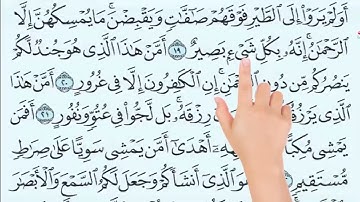 أَوَلَمْ يَرَوْا۟ إِلَى ٱلطَّيْرِ فَوْقَهُمْ صَـٰٓفَّـٰتٍ وَيَقْبِضْنَ ۚ مَا يُمْسِكُهُنَّ إِلَّا
ٱلرَّحْمَـٰنُ ۚ إِنَّهُۥ بِكُلِّ شَىْءٍۭ بَصِيرٌ ١٩ أَمَّنْ هَـٰذَا ٱلَّذِى هُوَ جُندٌ لَّكُمْ
يَنصُرُكُم مِّن دُونِ إِنِ ٱلْكَـٰفِرُونَ إِلَّا فِى غُرُورٍ ٢٠ أَمَّنْ هَـٰذَا
ٱلَّذِى رِزْقَهُۥ ۚ بَل لَّجُّوا۟ فِى عُتُوٍّ وَنُفُورٍ ٢١ أَفَمَن
يَمْشِى مُكِبًّا أَهْدَىٰٓ أَمَّن يَمْشِى سَوِيًّا عَلَىٰ صِرَٰطٍ
مُّسْتَقِيمٍ ٱلَّذِىٓ أَنشَأَكُمْ وَجَعَلَ لَكُمُ ٱلسَّمْعَ وَٱلْأَبْصَـٰرَ